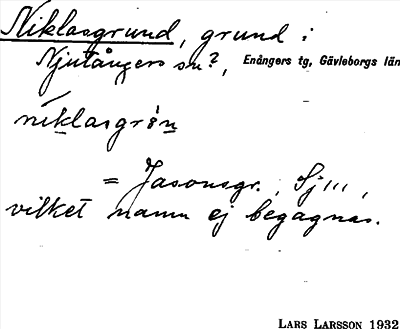 Niklasgrund, grund i
Njutångers sn?, Enångers tg, Gävleborgs län
niklasgrøn
= Jasonsgr., Sj III,
vilket namn ej begagnas.
LARS LARSSON 1932